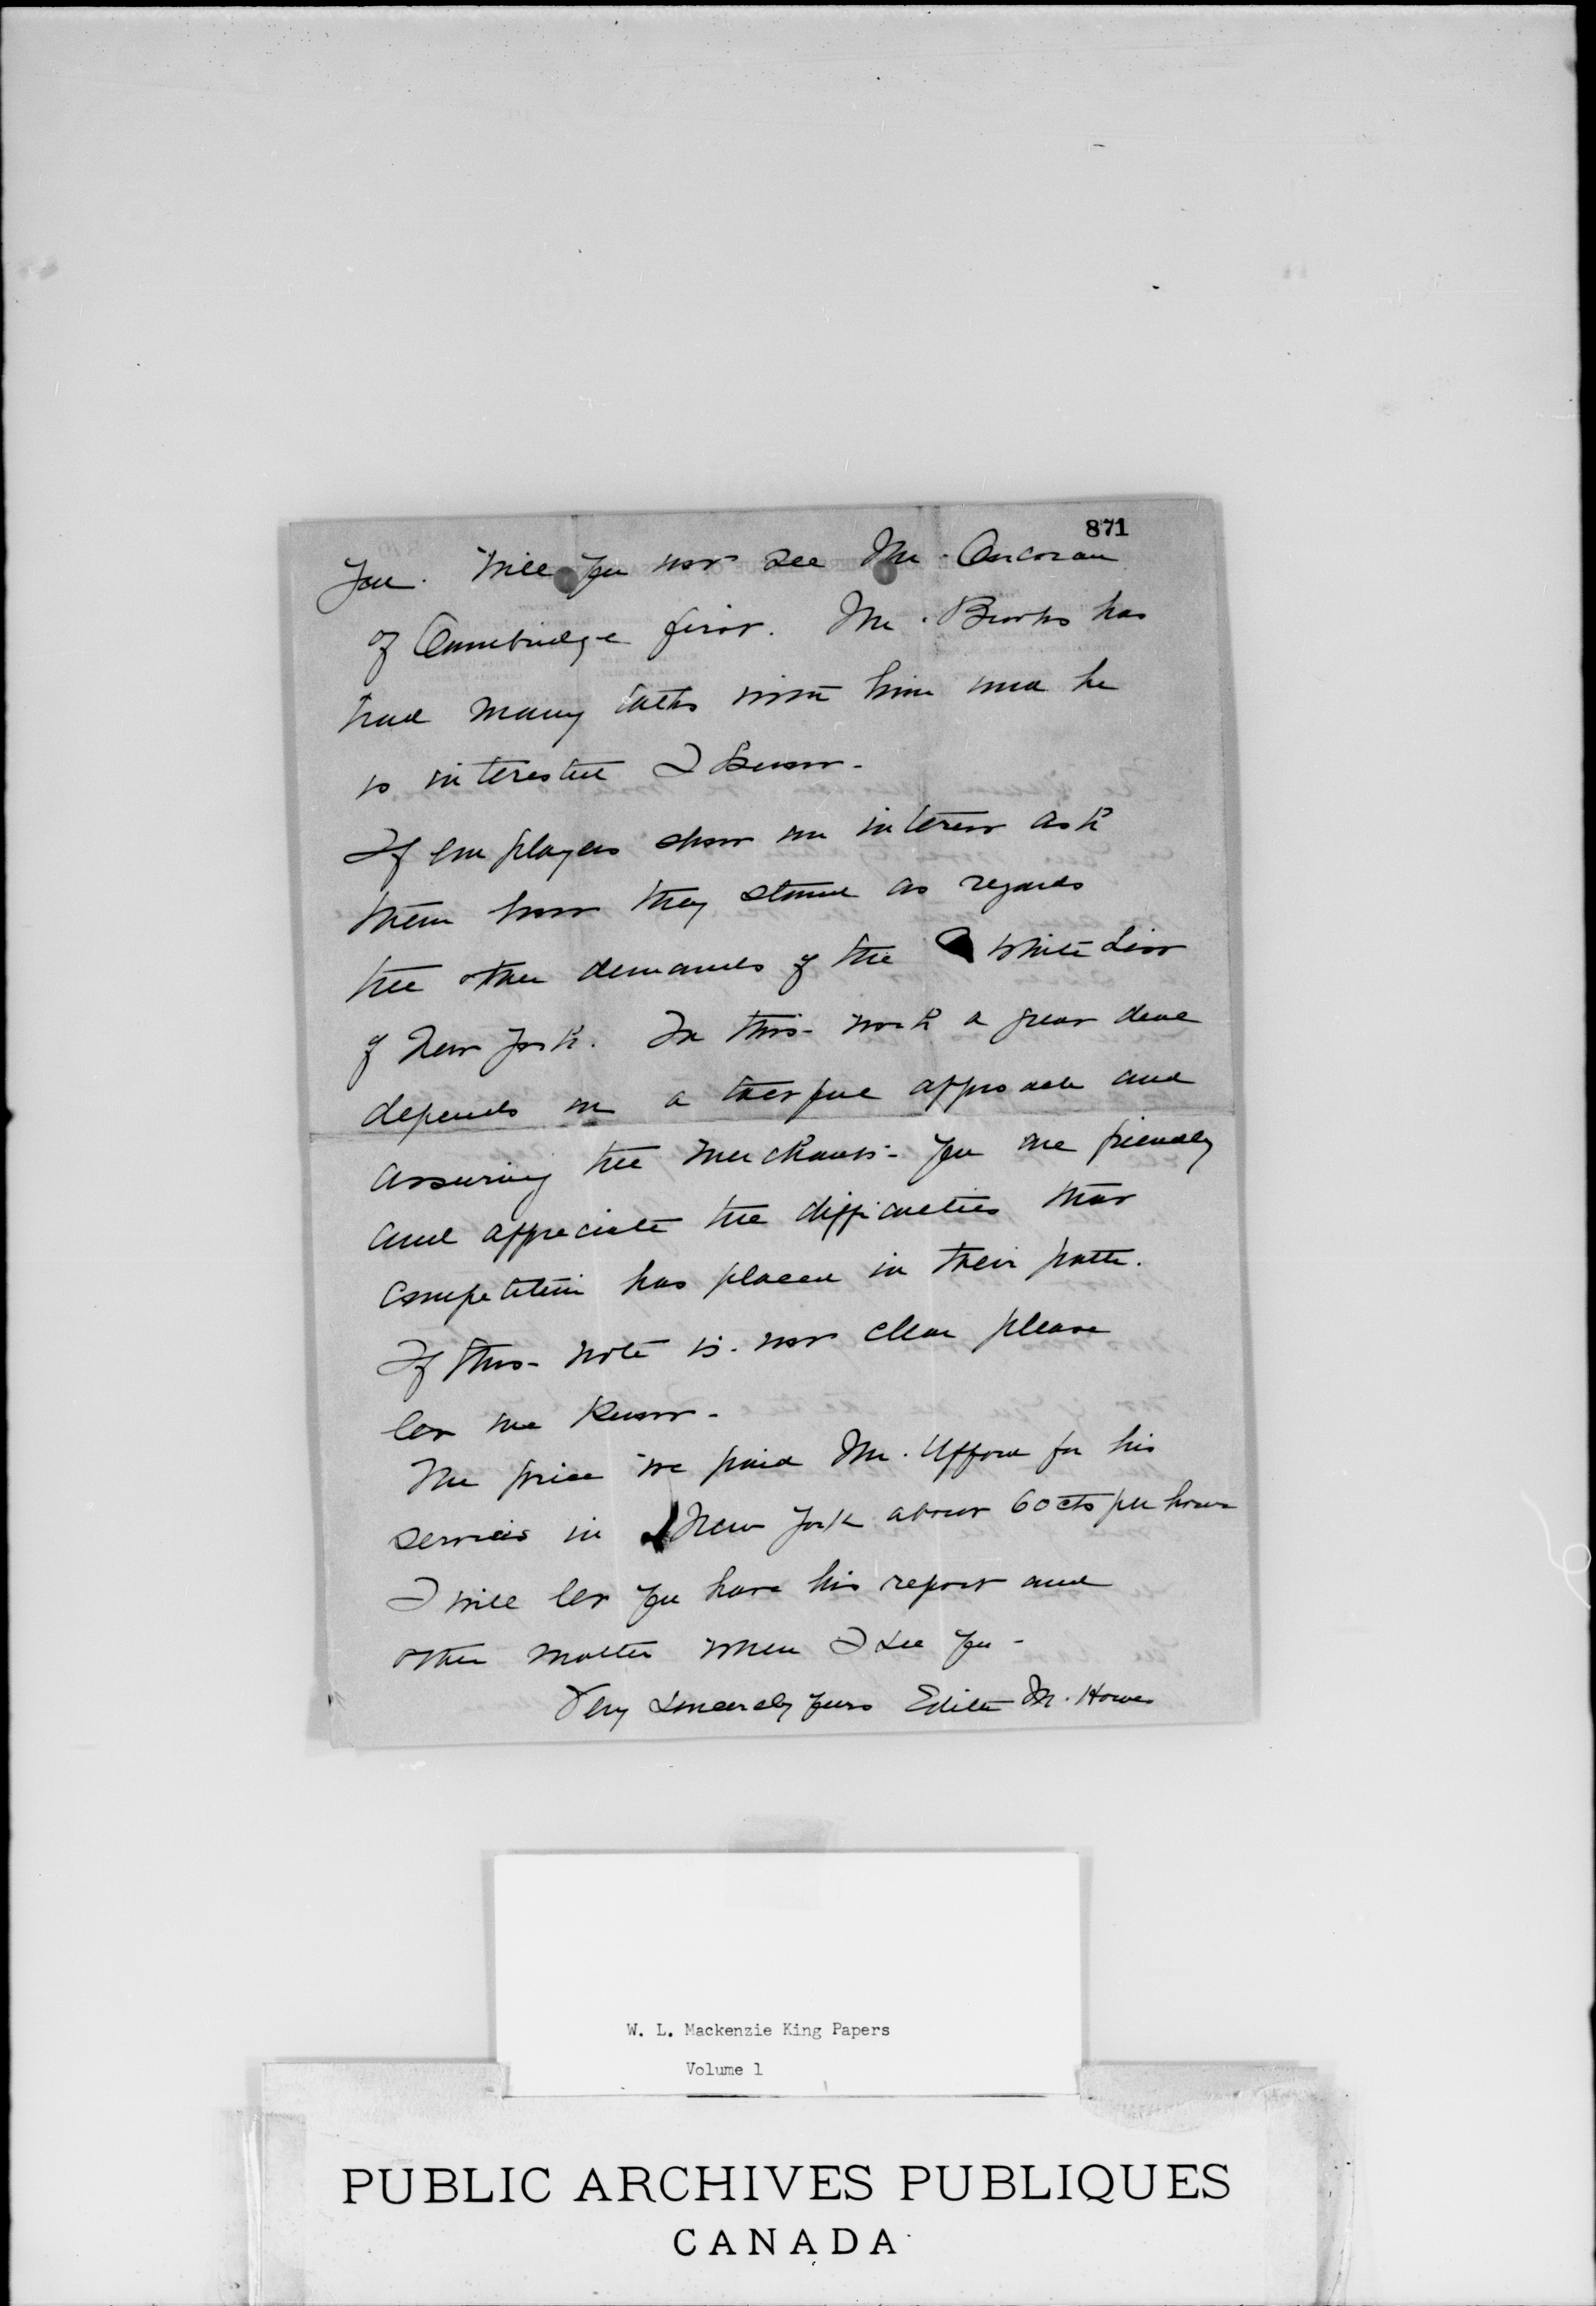 871
you. Will you not see Mr. Corcoran
of Cambridge first. Mr. Brooks has
had many talks with him and he
is interested I know.
If employers show an interest ask
them how they stand as regards
the other demands of the White List
of New York. In this work a great deal
depends on a tactful approach and
assuring the merchants you are friendly
and appreciate the difficulties that
competition has placed in their path.
If this note is not clear please
let me know.
The price we paid Mr. Ufford for his
services in New York about 60 cts per hour
I will let you have his report and
other matter when I see you.
Very sincerely yours Edith M. Howes
W. L. Mackenzie King Papers
Volume 1
PUBLIC ARCHIVES PUBLIQUES
CANADA